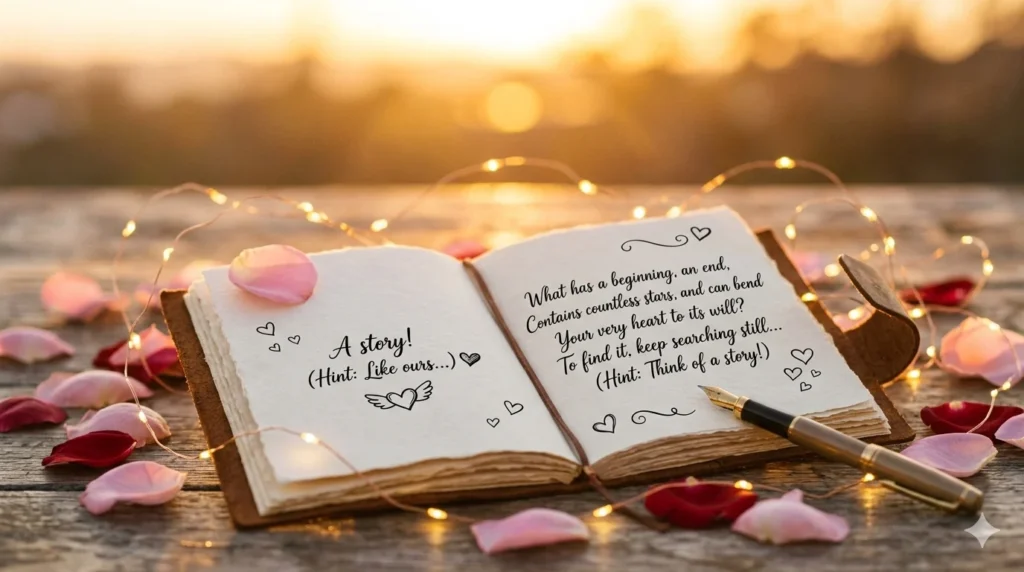 A story!
(Hint: Like ours...)
What has a beginning, an end,
Contains countless stars, and can bend
Your very heart to its will?
To find it, keep searching still...
(Hint: Think of a story!)